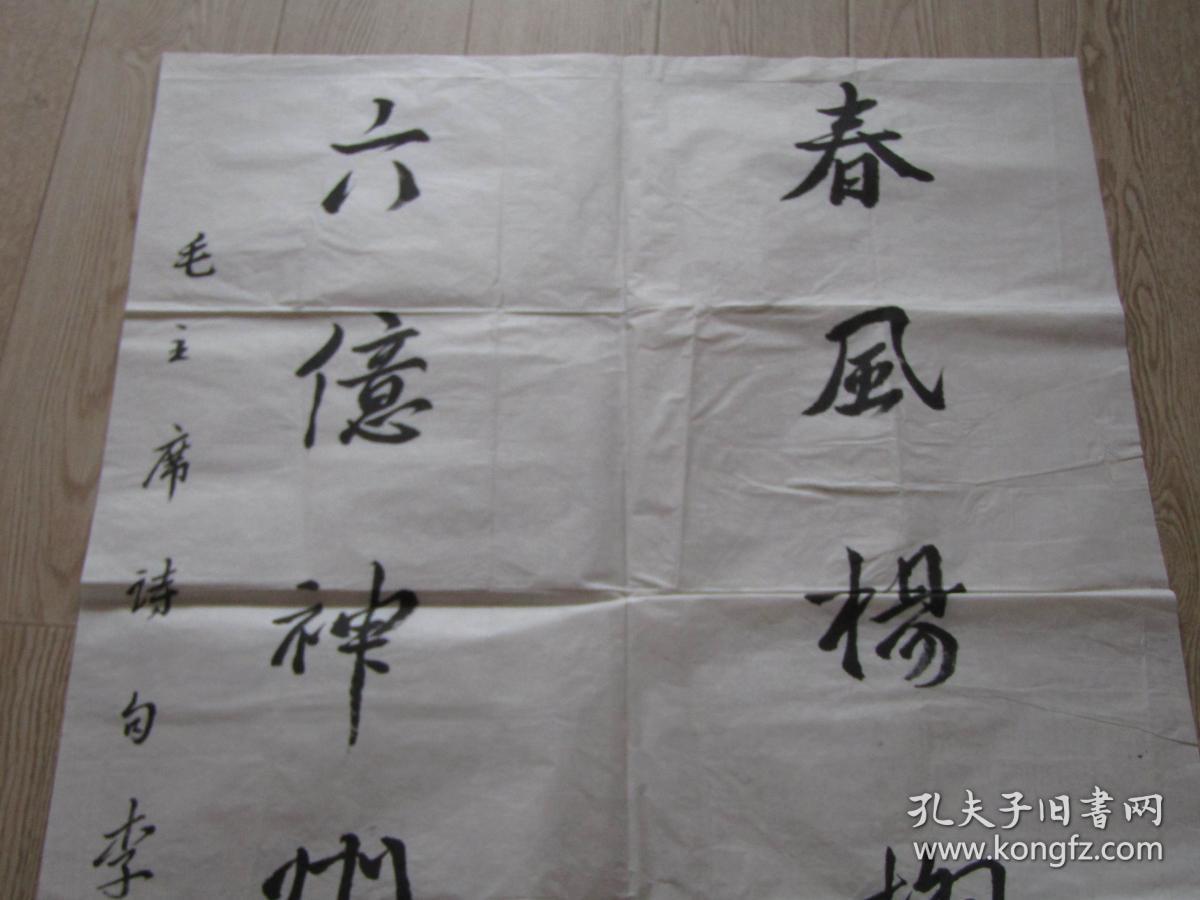 春風楊柳
六億神州
毛主席詩句李
孔夫子旧書网
www.kongfz.com